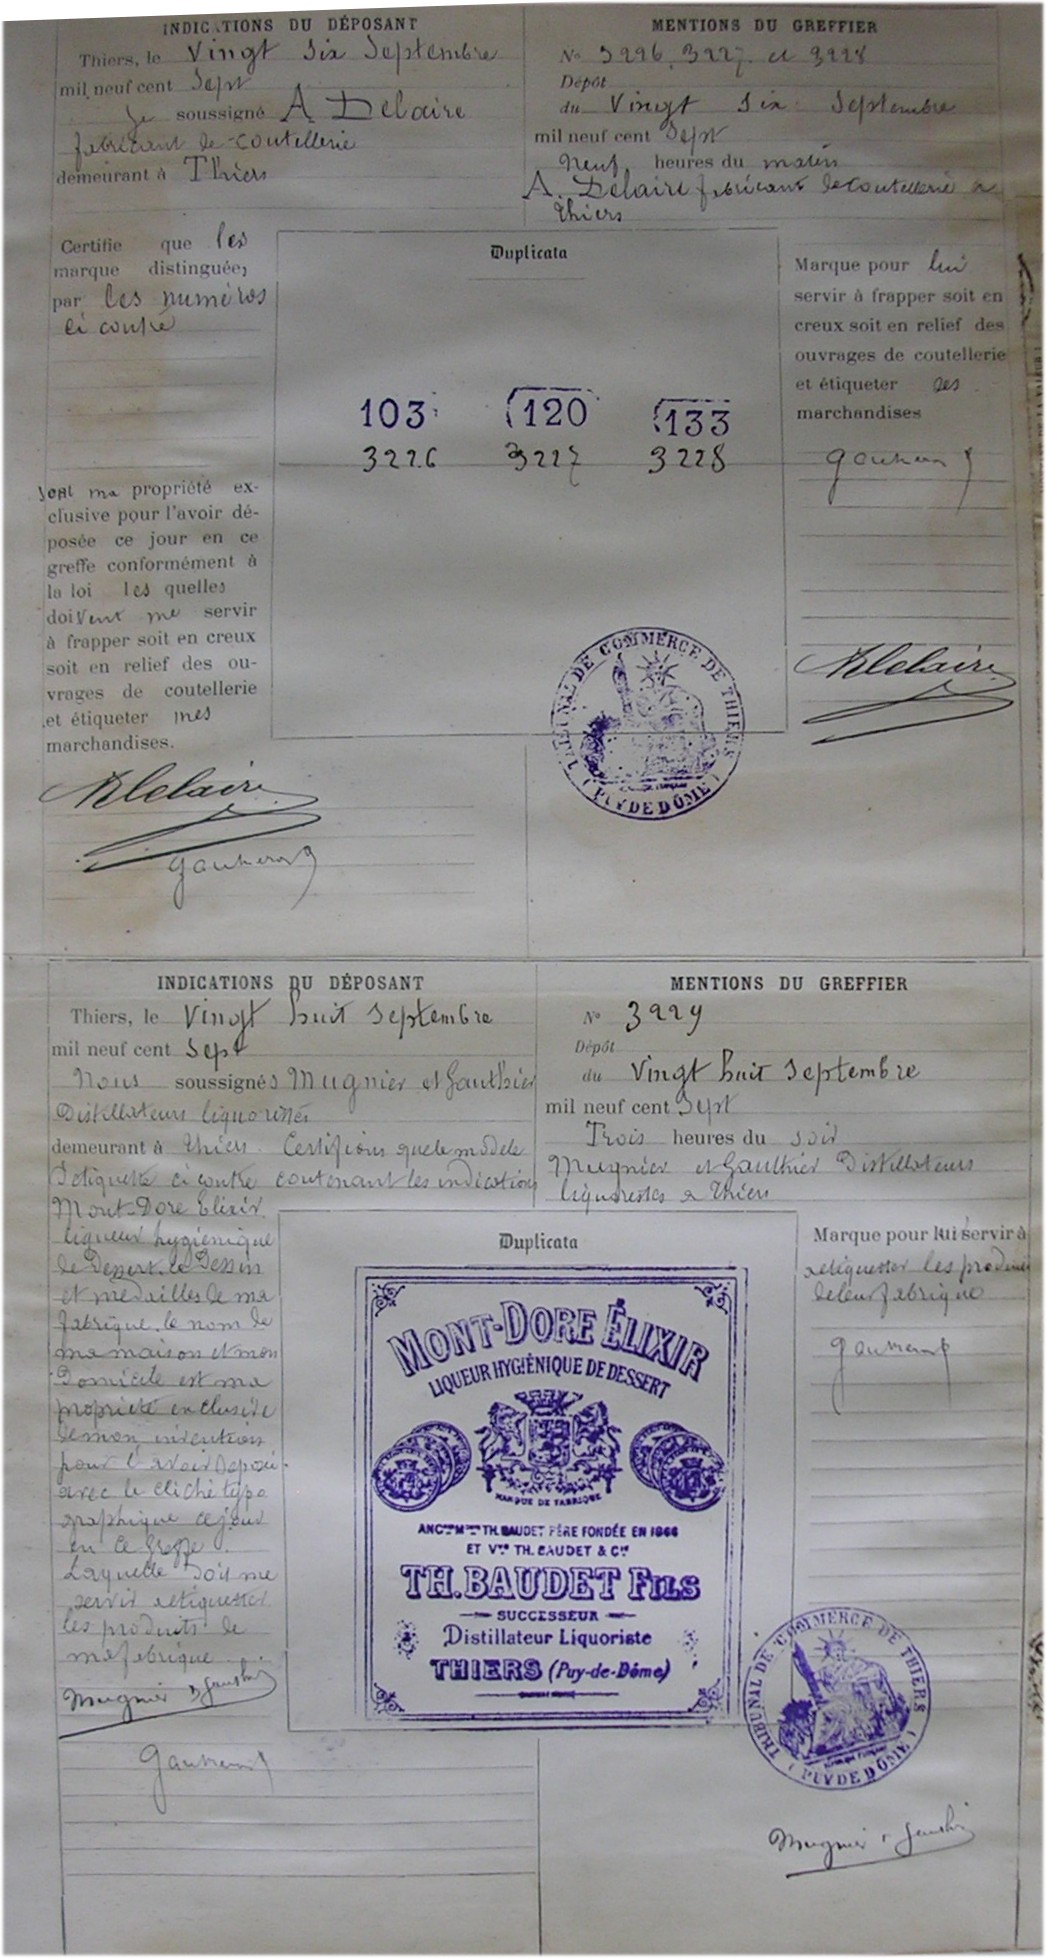 INDICATIONS DU DÉPOSANT
Thiers, le Vingt Six Septembre
mil neuf cent Sept
Je soussigné A Delaire
fabricant de coutellerie
demeurant à Thiers
MENTIONS DU GREFFIER
No 3226, 3227 et 3228
Dépôt
du Vingt Six Septembre
mil neuf cent Sept
Neuf heures du matin
A. Delaire fabricant de coutellerie a
Thiers
Certifie que les
marque distinguée,
par les numéros
ci contre
sont ma propriété ex-
clusive pour l'avoir dé-
posée ce jour en ce
greffe conformément à
la loi les quelles
doivent me servir
à frapper soit en creux
soit en relief des ou-
vrages de coutellerie
et étiqueter mes
marchandises.
ADelaire
Duplicata
103 120 133
3226 3227 3228
TRIBUNAL DE COMMERCE DE THIERS
(PUY DE DÔME)
Marque pour lui
servir à frapper soit en
creux soit en relief des
ouvrages de coutellerie
et étiqueter ses
marchandises
ADelaire
INDICATIONS DU DÉPOSANT
Thiers, le Vingt huit Septembre
mil neuf cent Sept
Nous soussignés Mugnier et Gauthier
Distillateurs liquoristes
demeurant à Thiers. Certifions que le modèle
d'etiquette ci contre contenant les indications
Mont-Dore Elixir
liqueur hygiénique
de Dessert, le Dessin
et medailles de ma
fabrique, le nom de
ma maison et mon
Domicile est ma
propriété exclusive
de mon invention
pour l'avoir Déposé
avec le cliché typo
graphique ce jour
en ce Greffe.
Laquelle Doit me
servir a etiqueter
les produits de
ma fabrique
Mugnier & Gauthier
MENTIONS DU GREFFIER
No 3229
Dépôt
du Vingt huit Septembre
mil neuf cent Sept
Trois heures du soir
Mugnier et Gauthier Distillateurs
liquoristes a Thiers
Duplicata
MONT-DORE ÉLIXIR
LIQUEUR HYGIÉNIQUE DE DESSERT
MARQUE DE FABRIQUE
ANCne Mson TH. BAUDET PÈRE FONDÉE EN 1866
ET Vve TH. BAUDET & Cie
TH. BAUDET FILS
SUCCESSEUR
Distillateur Liquoriste
THIERS (Puy-de-Dôme)
Marque pour lui servir à
etiqueter les produits
de leur fabrique
TRIBUNAL DE COMMERCE DE THIERS
(PUY DE DÔME)
Mugnier & Gauthier